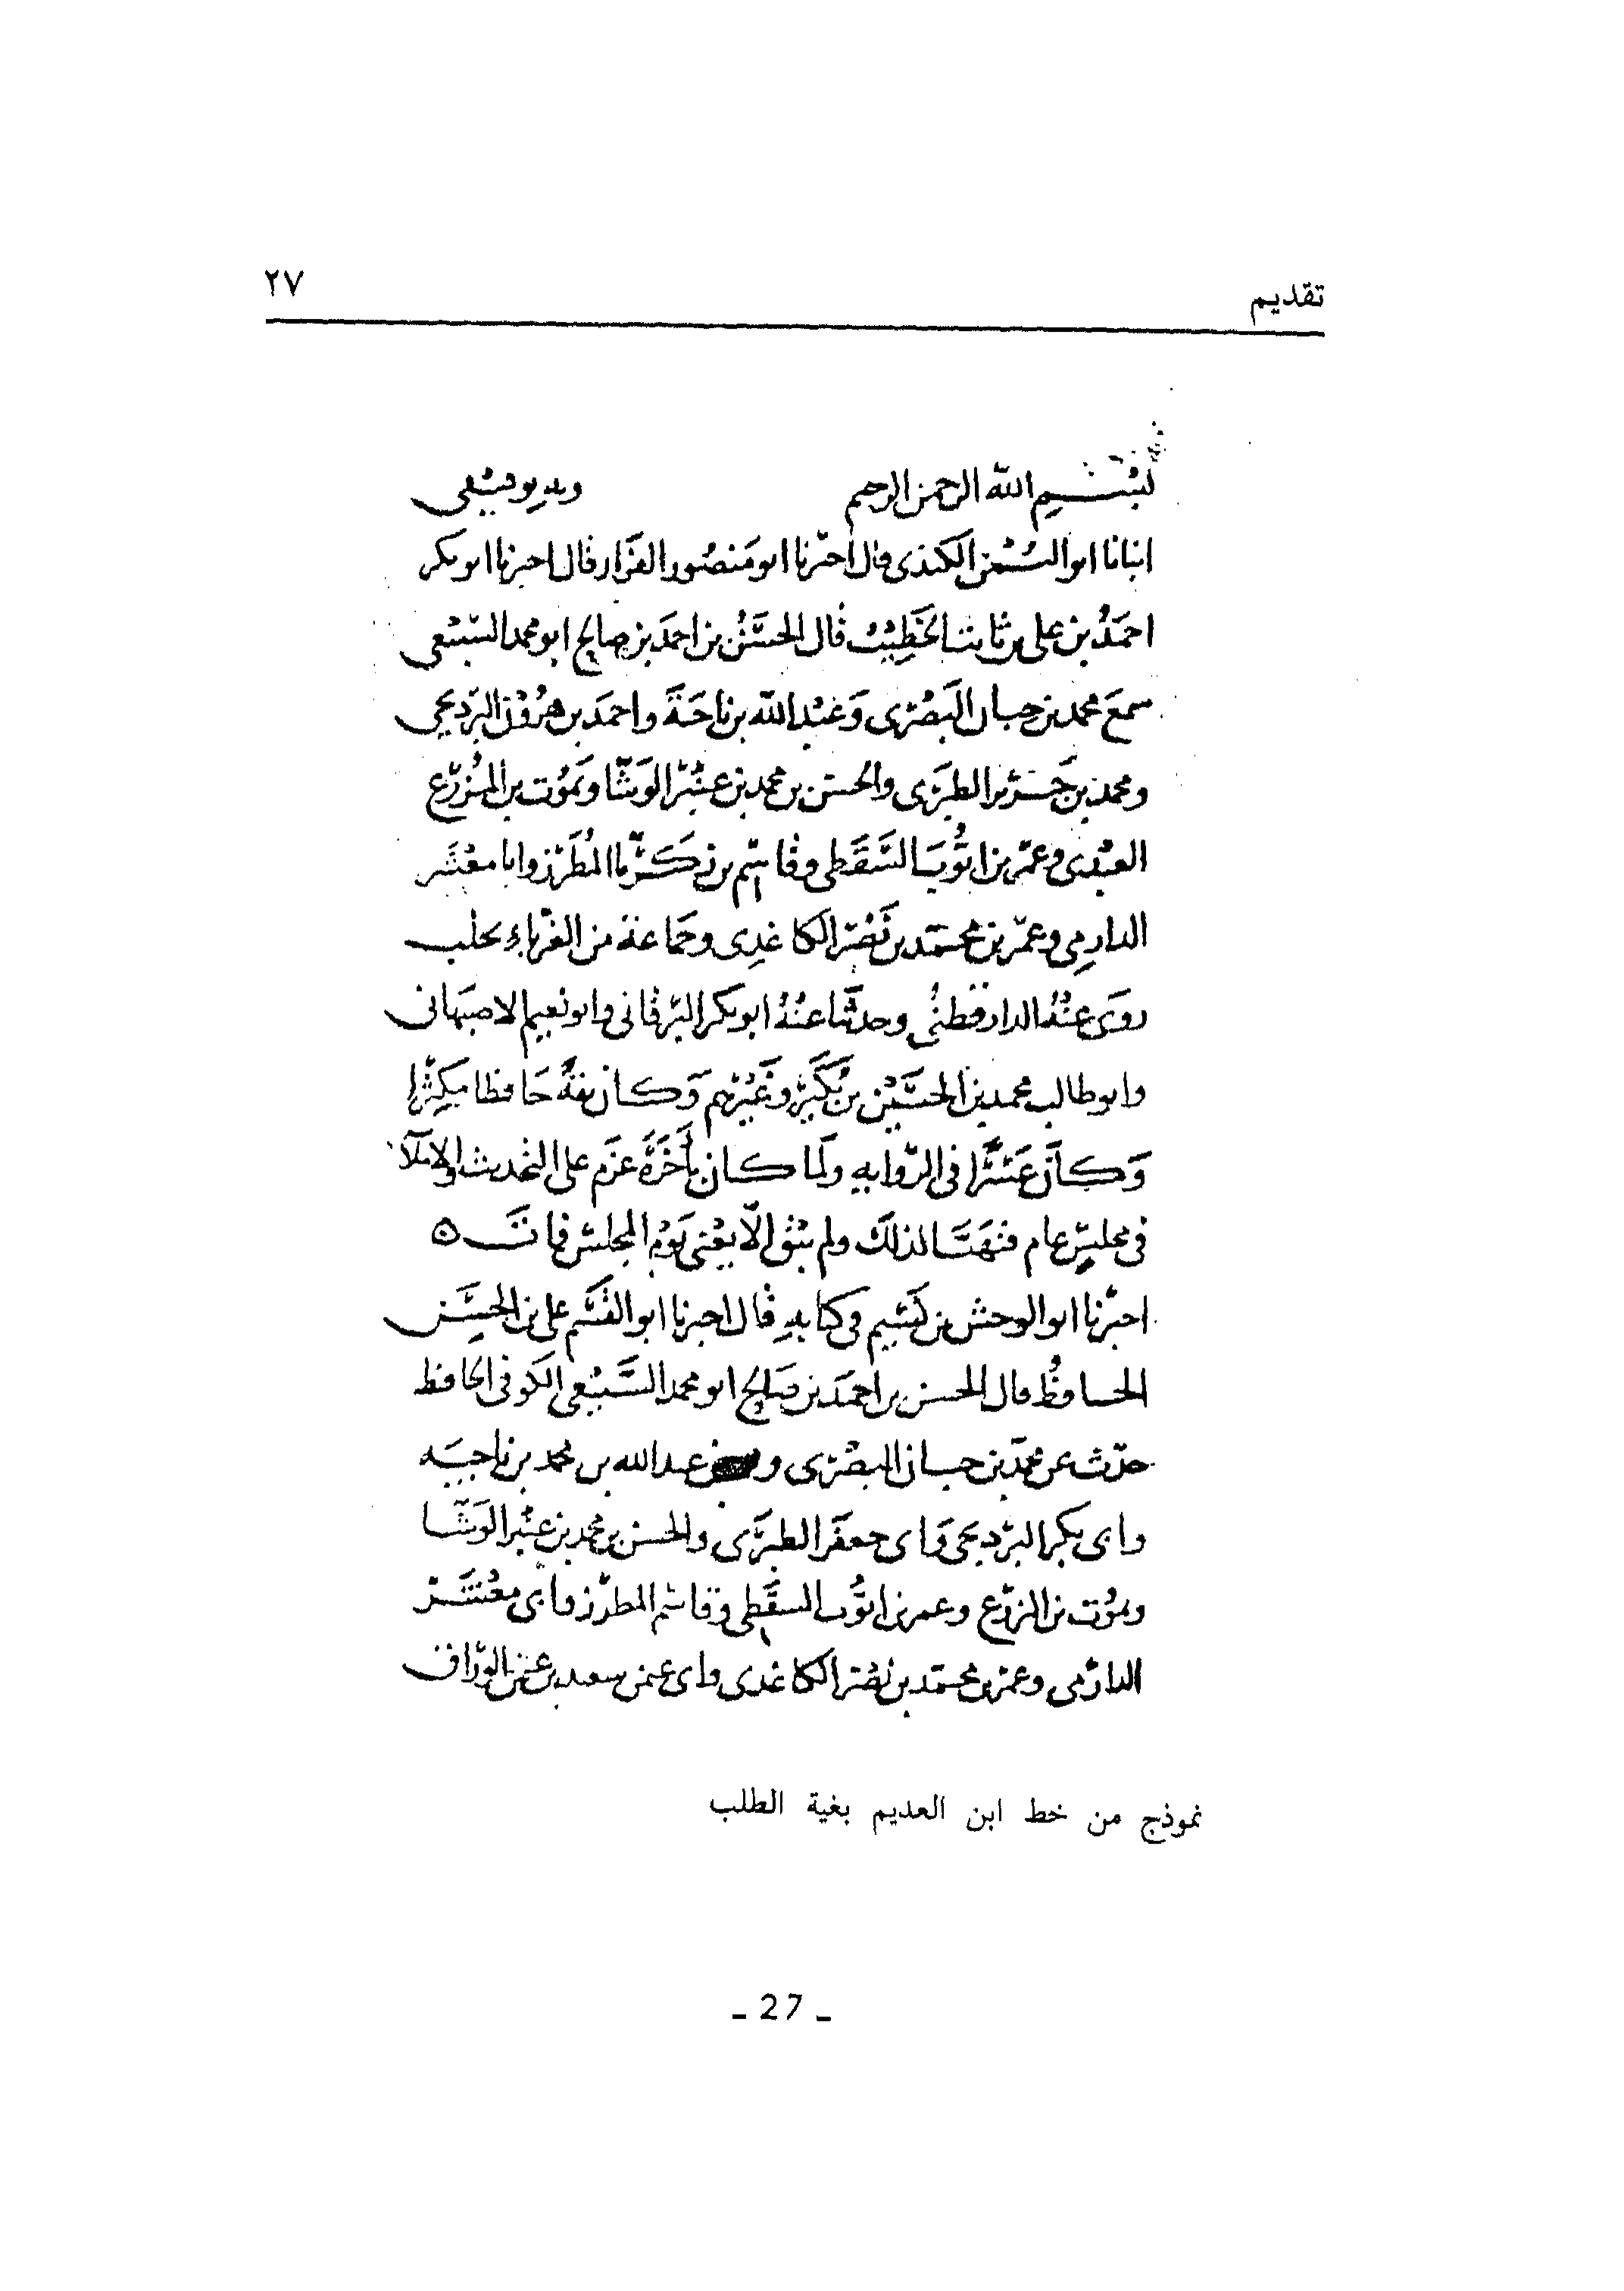 تقديم
٢٧
بسم الله الرحمن الرحيم وبه توفيقي
انبانا ابو اليمن الكندي قال اخبرنا ابو منصور القزاز قال اخبرنا ابو بكر
احمد بن علي بن ثابت الخطيب قال الحسن بن احمد بن صالح ابو محمد السبيعي
سمع محمد بن حبان البصري وعبد الله بن ناجية واحمد بن هرون البرديجي
ومحمد بن جرير الطبري والحسن بن محمد بن عنبر الوشا ويموت بن المزرع
العبدي وعمر بن ايوب السقطي وقاسم بن زكريا المطرز وابا معشر
الدارمي وعمر بن محمد بن نصر الكاغدي وجماعة من الغرباء بحلب
روى عنه الدارقطني وحدثنا عنه ابو بكر البرقاني وابو نعيم الاصبهاني
وابو طالب محمد بن الحسين بن بكير وغيرهم وكان ثقة حافظا مكثرا
وكان عسرا في الرواية ولما كان بأخرة عزم على التحديث والاملاء
في مجلس عام فتهيا لذلك ولم يبق الا يعني يوم المجلس فمات ٥
اخبرنا ابو الوحش بن نسيم في كتابه قال اخبرنا ابو القسم علي بن الحسن
الحافظ قال الحسن بن احمد بن صالح ابو محمد السبيعي الكوفي الحافظ
حدث عن محمد بن حبان البصري وعبد الله بن محمد بن ناجية
وابي بكر البرديجي وابي جعفر الطبري والحسن بن محمد بن عنبر الوشا
ويموت بن المزرع وعمر بن ايوب السقطي وقاسم المطرز وابي معشر
الدارمي وعمر بن محمد بن نصر الكاغدي وابي سعد بن الوراق
نموذج من خط ابن العديم بغية الطلب
- 27 -